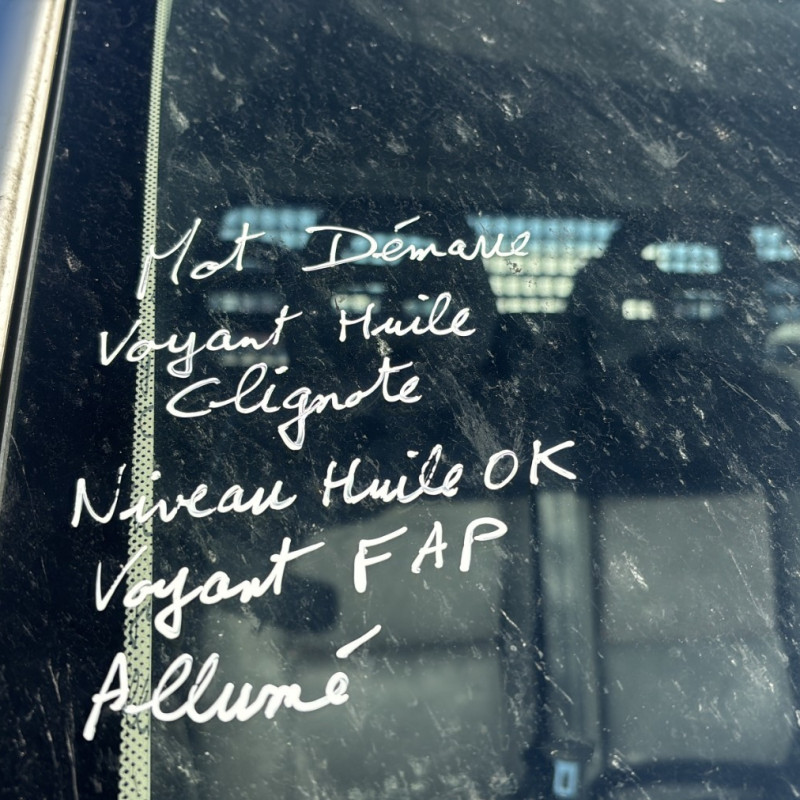 Mot Démarre
Voyant Huile
Clignote
Niveau Huile OK
Voyant FAP
Allumé